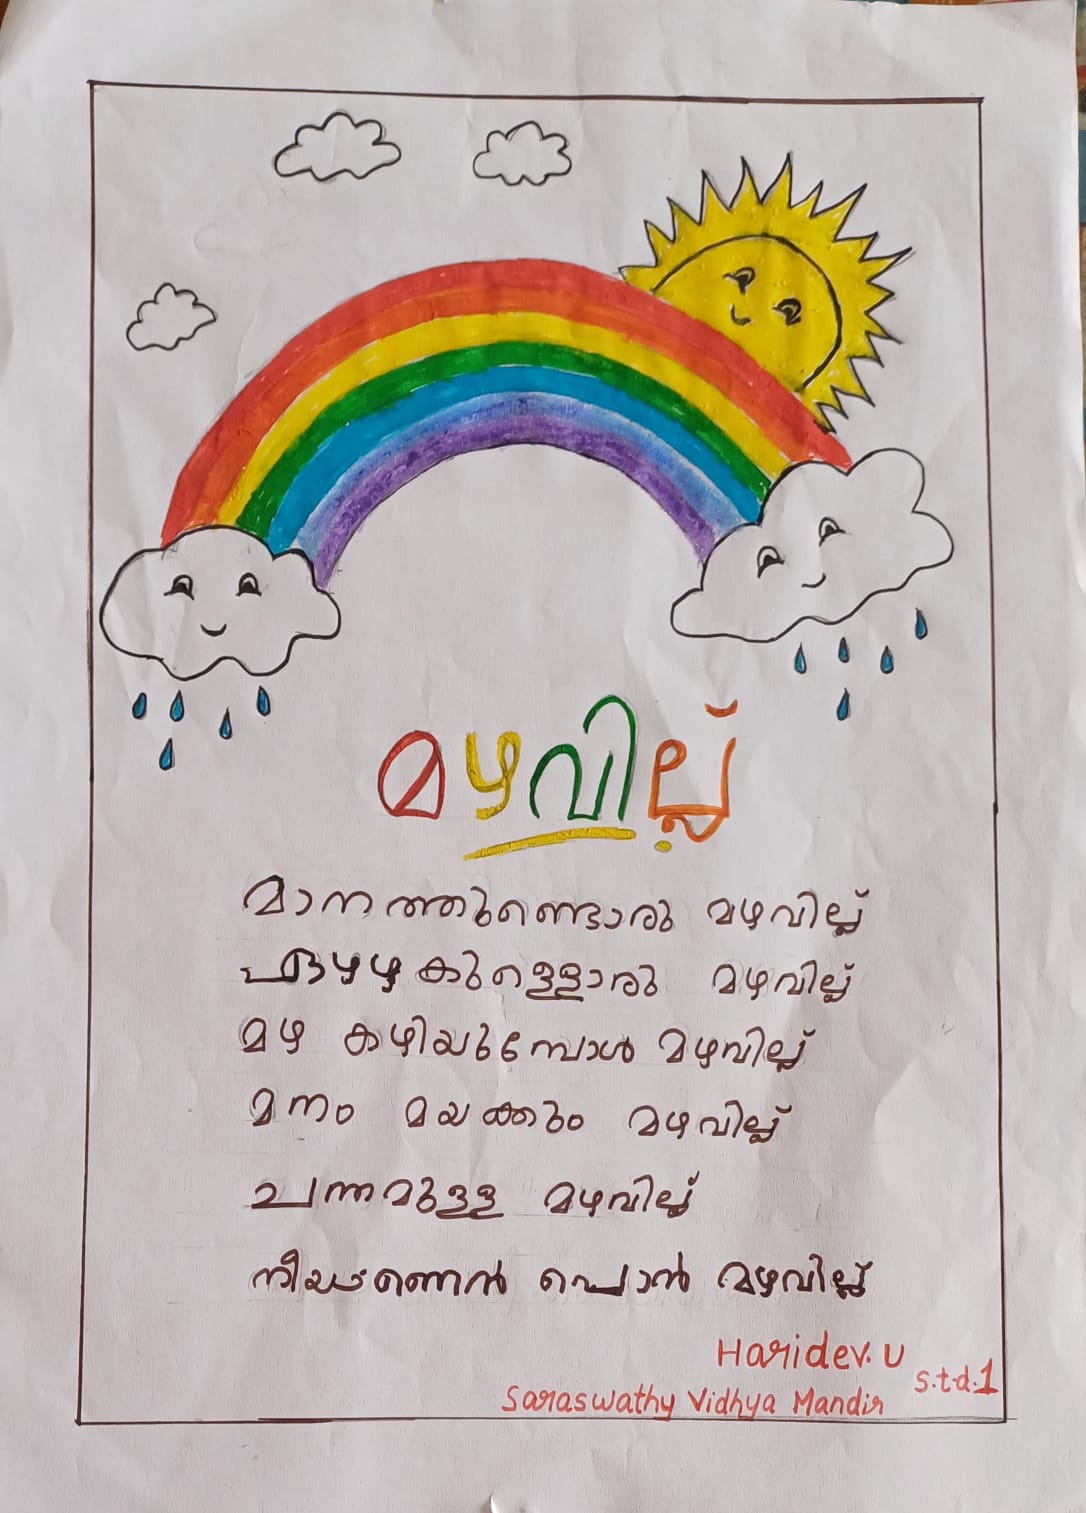 മഴവില്ല്
മാനത്തുണ്ടൊരു മഴവില്ല്
ഏഴഴകുള്ളൊരു മഴവില്ല്
മഴ കഴിയുമ്പോൾ മഴവില്ല്
മനം മയക്കും മഴവില്ല്
ചന്തമുള്ള മഴവില്ല്
നീയാണെൻ പൊൻ മഴവില്ല്
Haridev. U
s.t.d.1
Saraswathy Vidhya Mandir